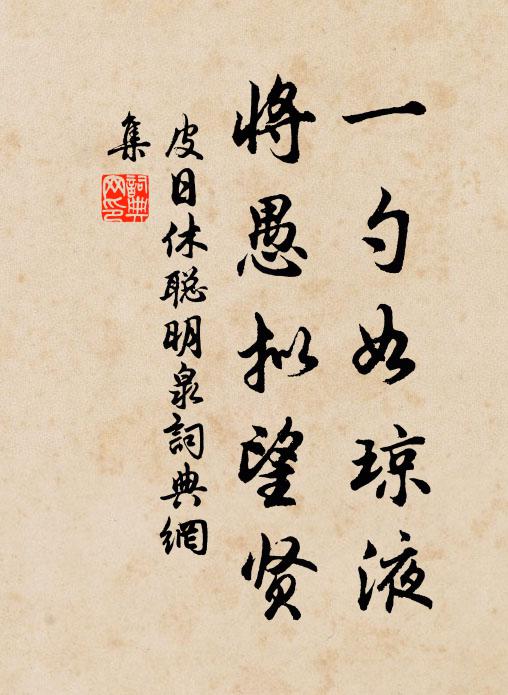 一勺如琼液
将愚拟望贤
皮日休聪明泉詞典網
集
詞典网印